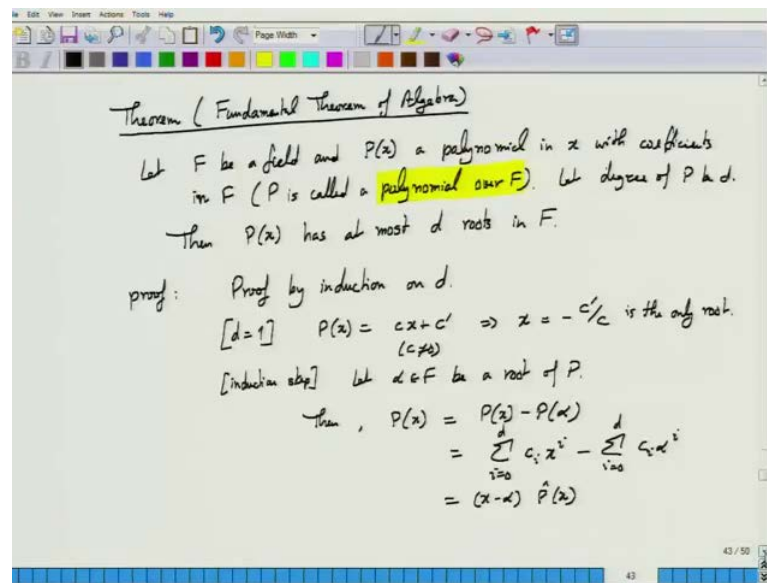 Edit View Insert Actions Tools Help
Page Width
B I
Theorem ( Fundamental Theorem of Algebra)
Let F be a field and P(x) a polynomial in x with coefficients
in F ( P is called a polynomial over F ). Let degree of P be d.
Then P(x) has at most d roots in F.
proof : Proof by induction on d.
[d=1] P(x) = cx + c' => x = -c'/c is the only root.
(c≠0)
[induction step] Let α ∈ F be a root of P.
Then , P(x) = P(x) - P(α)
= ∑_{i=0}^{d} c_i x^i - ∑_{i=0}^{d} c_i α^i
= (x-α) P̂(x)
43 / 50
43